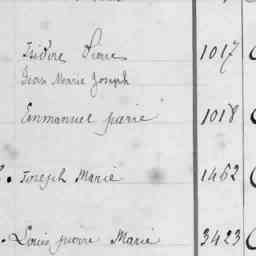 Isidore Pierre 1017
Jean Marie Joseph
Emmanuel pierre 1018
Joseph Marie 1462
Louis pierre Marie 3423